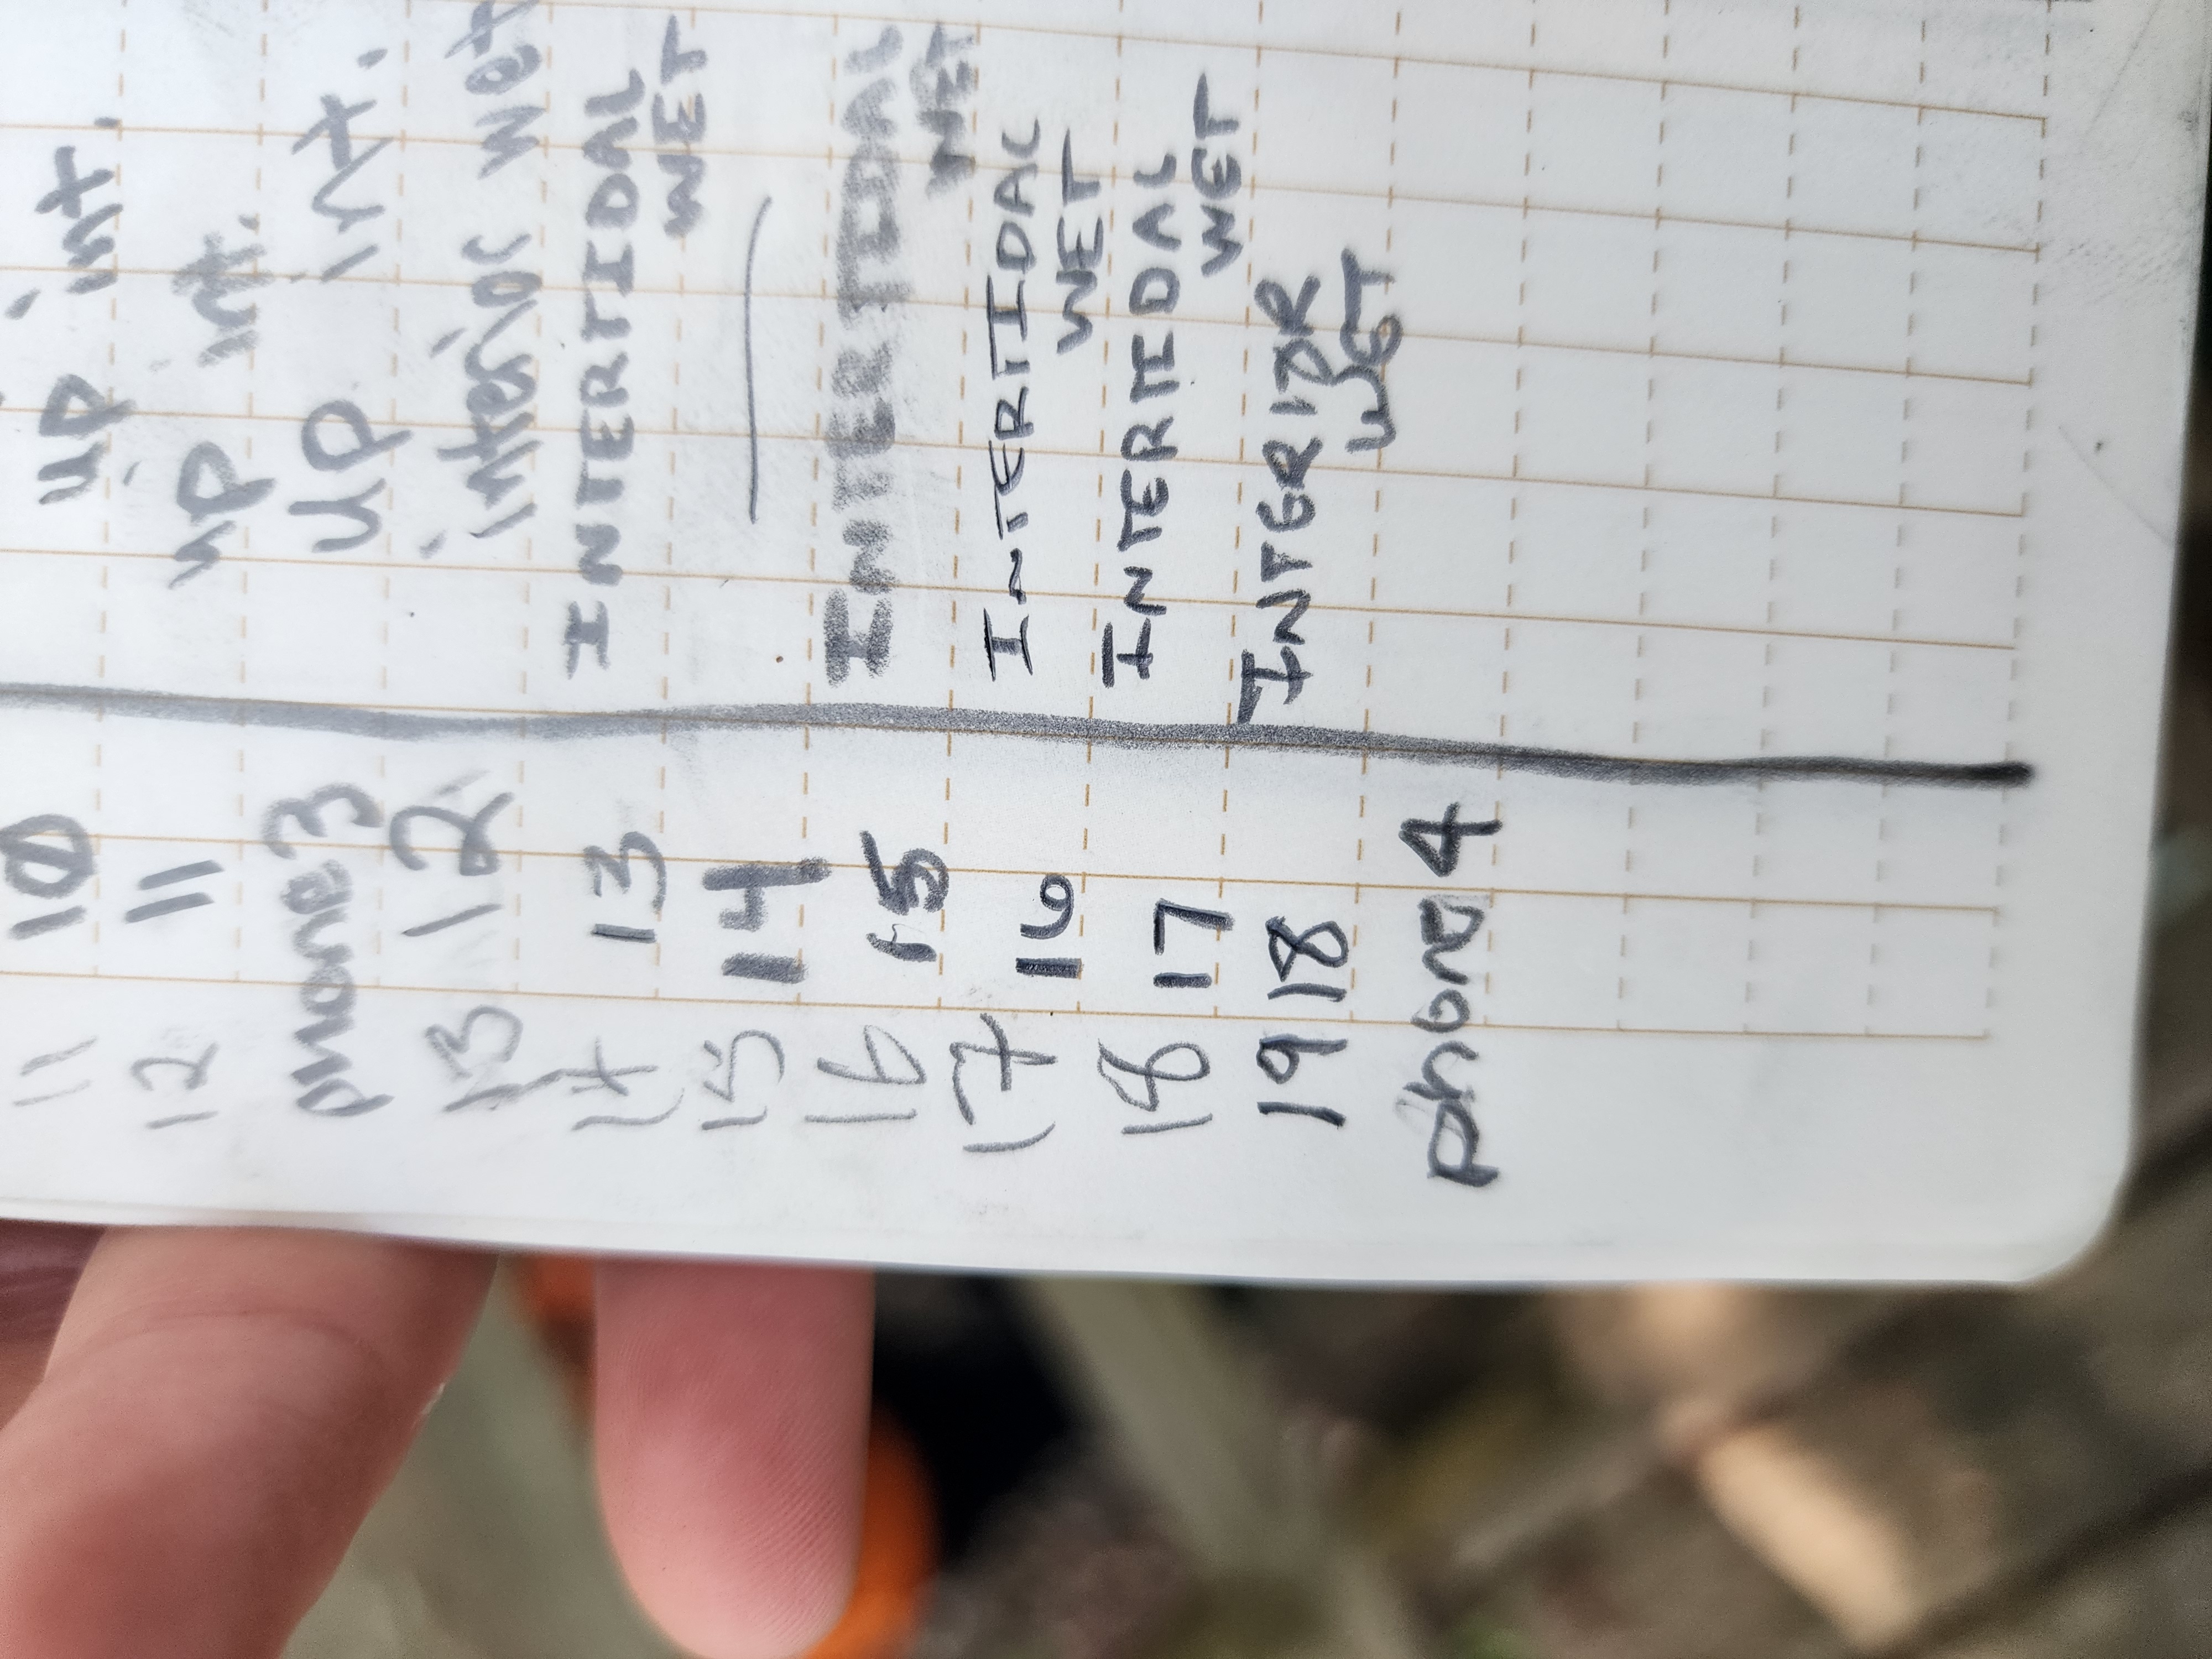 11 10 UP int.
12 11 UP int.
phone 3 UP int.
13 12 interior wet
14 13 INTERTIDAL
WET
15 14 —
16 15 INTERTIDAL
WET
17 16 INTERTIDAL
WET
18 17 INTERTIDAL
WET
19 18 INTERIOR
WET
phone 4